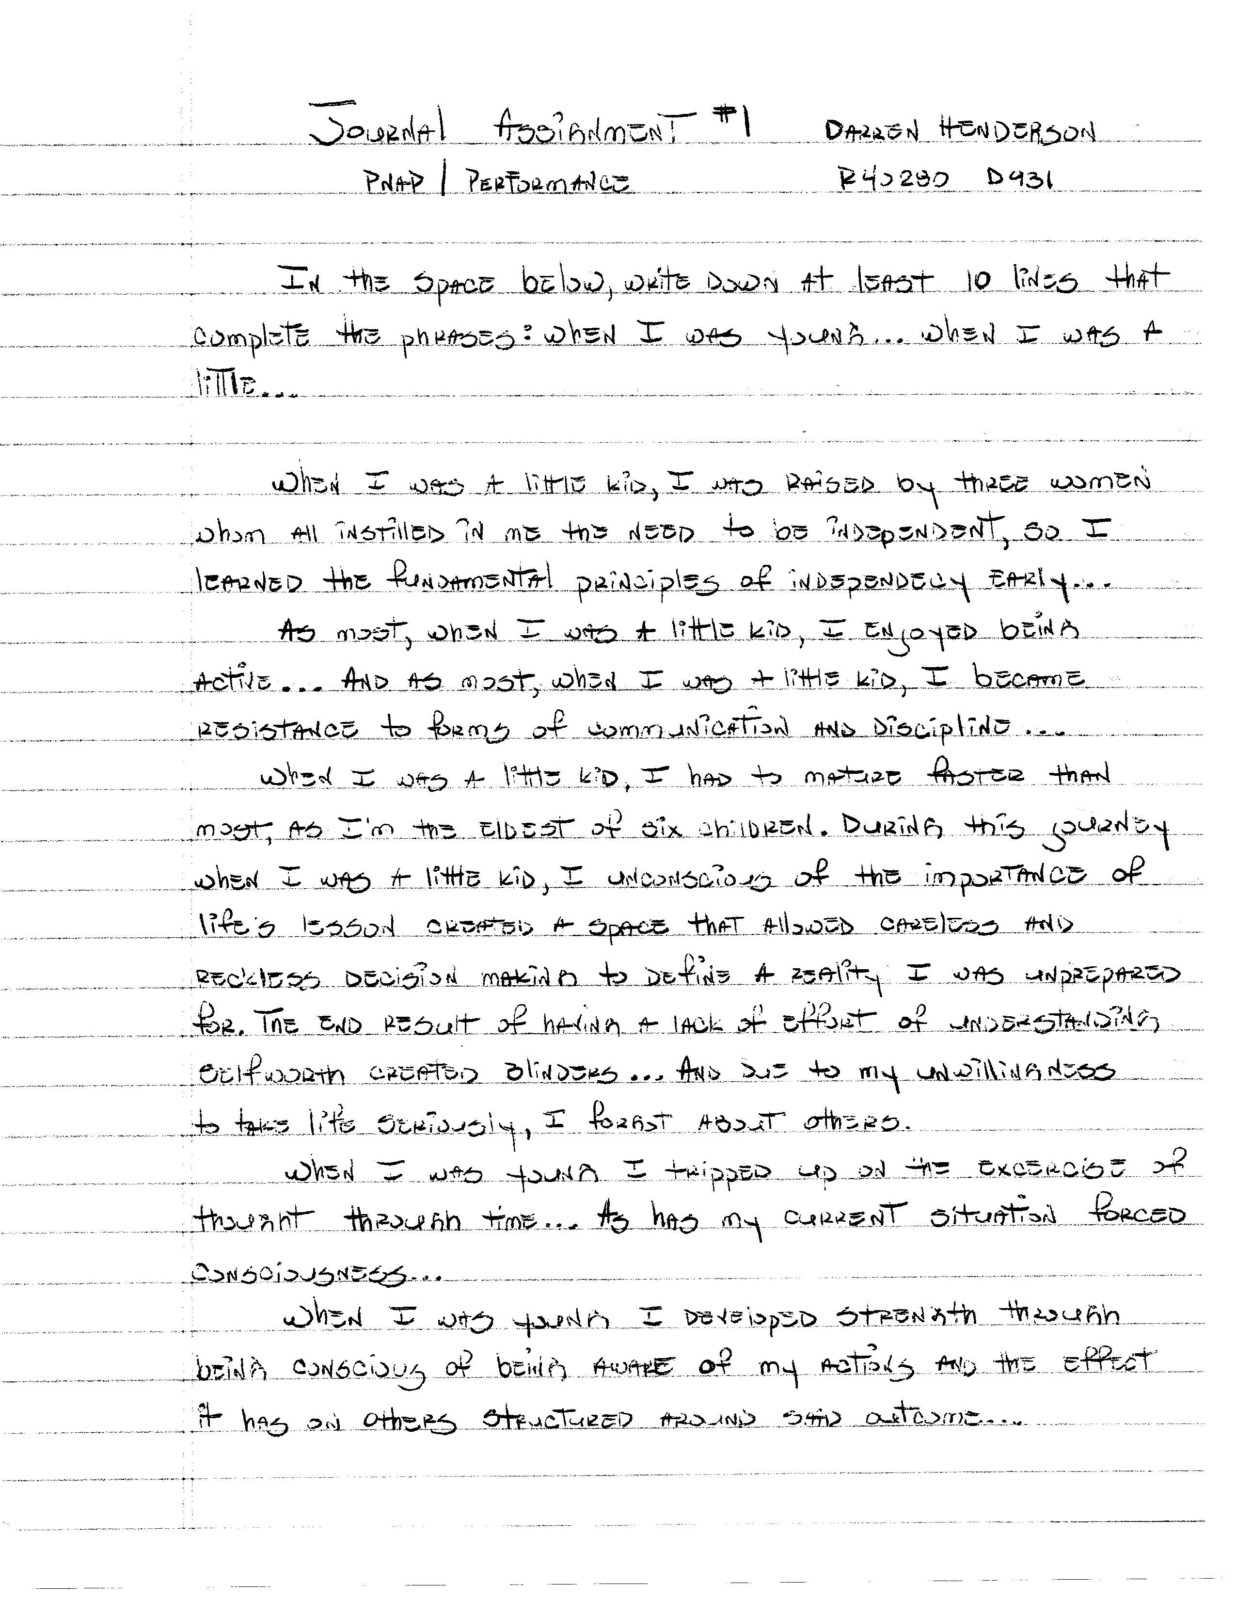 Journal Assignment #1 Darren Henderson
PNAP | Performance R40280 D931
In the space below, write down at least 10 lines that
complete the phrases: when I was young... when I was a
little...
When I was a little kid, I was raised by three women
whom all instilled in me the need to be independent, so I
learned the fundamental principles of independecy early...
As most, when I was a little kid, I enjoyed being
active... And as most, when I was a little kid, I became
resistance to forms of communication and discipline...
When I was a little kid, I had to mature faster than
most, as I'm the eldest of six children. During this journey
when I was a little kid, I unconscious of the importance of
life's lesson created a space that allowed careless and
reckless decision making to define a reality I was unprepared
for. The end result of having a lack of effort of understanding
selfworth created blinders... And due to my unwillingness
to take life seriously, I forgot about others.
When I was young I tripped up on the excercise of
thought through time... As has my current situation forced
consciousness...
When I was young I developed strength through
being conscious of being aware of my actions and the effect
it has on others structured around said outcome....